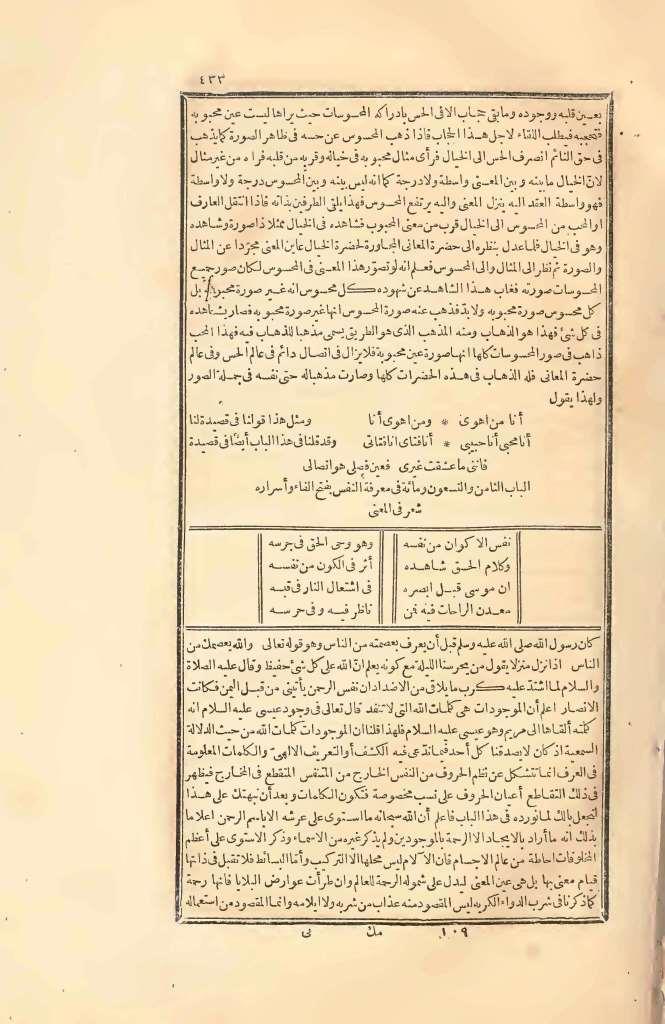 ٤٣٣
بعين قلبه ووجوده وما بقى حجاب الا فى الحس بادراكه المحسوسات حيث يراها ليست عين محبوبه
فتحجبه فيطلب اللقاء لاجل هذا الحجاب فاذا ذهب المحسوس عن حسه فى ظاهر الصورة كما يذهب
فى حق النائم انصرف الحس الى الخيال فرأى مثال محبوبه فى خياله وقربه من قلبه فرآه من غير مثال
لان الخيال ما بينه وبين المعنى واسطة ولا درجة كما انه ليس بينه وبين المحسوس درجة ولا واسطة
فهو واسطة العقد اليه ينزل المعنى واليه يرتفع المحسوس فهذا يلقى الطرفين بذاته فاذا انتقل العارف
او المحب من المحسوس الى الخيال قرب من معنى المحبوب فشاهده فى الخيال ممثلا ذا صورة وشاهده
وهو فى الخيال فلما عدل بنظره الى حضرة المعانى المجاورة لحضرة الخيال عاين المعنى مجردا عن المثال
والصورة ثم نظر الى المثال والى المحسوس فعلم انه لو تصور هذا المعنى فى المحسوس لكان صور جميع
المحسوسات صورته فغاب هذا الشاهد عن شهوده كل محسوس انه غير صورة محبوبه بل
كل محسوس صورة محبوبه ولا بد فذهب عنه صورة المحسوس انها غير صورة محبوبه فصار يشاهده
فى كل شئ فهذا هو الذهاب ومنه المذهب الذى هو الطريق يسمى مذهبا للذهاب فيه فهذا المحب
ذاهب فى صور المحسوسات كلها انها صورة عين محبوبه فلا يزال فى اتصال دائم فى عالم الحس وفى عالم
حضرة المعانى فله الذهاب فى هذه الحضرات كلها وصارت مذهبا له حتى نفسه فى جملة الصور
ولهذا يقول
أنا من اهوى * ومن اهوى أنا ومثل هذا قولنا فى قصيدة لنا
أنا محبى أنا حبيبى * أنا فتاى انا فتاتى وقد قلنا فى هذا الباب أيضا فى قصيدة
فاننى ما عشقت غيرى فعين فصلى هو اتصالى
الباب الثامن والتسعون ومائة فى معرفة النفس بفتح الفاء وأسراره
شعر فى المعنى
نفس الاكوان من نفسه وهو وحى الحق فى جرسه
وكلام الحق شاهده أثر فى الكون من نفسه
ان موسى قبل ابصره فى اشتعال النار فى قبسه
معدن الراحات فيه فمن ناظر فيه وفى حرسه
كان رسول الله صلى الله عليه وسلم قبل أن يعرف بعصمته من الناس وهو قوله تعالى والله يعصمك من
الناس اذا نزل منزلا يقول من يحرسنا الليلة مع كونه يعلم ان الله على كل شئ حفيظ وقال عليه الصلاة
والسلام لما اشتد عليه كرب ما يلاقى من الاضداد ان نفس الرحمن يأتينى من قبل اليمن فكانت
الانصار اعلم أن الموجودات هى كلمات الله التى لا تنفد قال تعالى فى وجود عيسى عليه السلام انه
كلمته ألقاها الى مريم وهو عيسى عليه السلام فلهذا قلنا ان الموجودات كلمات الله من حيث الدلالة
السمعية اذ كان لا يصدقنا كل أحد فيما ندعى فيه الكشف أو التعريف الالهى والكلمات المعلومة
فى العرف انما تتشكل عن نظم الحروف من النفس الخارج من المتنفس المتقطع فى المخارج فيظهر
فى ذلك التقاطع أعيان الحروف على نسب مخصوصة فتكون الكلمات وبعد أن نبهتك على هذا
لتجعل بالك لما نورده فى هذا الباب فاعلم أن الله سبحانه ما استوى على عرشه الا باسم الرحمن اعلاما
بذلك انه ما أراد بالايجاد الا الرحمة بالموجودين ولم يذكر غيره من الاسماء وذكر الاستوى على أعظم
المخلوقات احاطة من عالم الاجسام فان الآلام ليس محلها الا التركيب وأما البسائط فلا تقبل فى ذاتها
قيام معنى بها بل هى عين المعنى ليدل على شمول الرحمة للعالم وان طرأت عوارض البلايا فانها رحمة
كما ذكرنا فى شرب الدواء الكريه ليس المقصود منه عذاب من شربه ولا ايلامه وانما المقصود من استعماله
١٠٩ مك نى